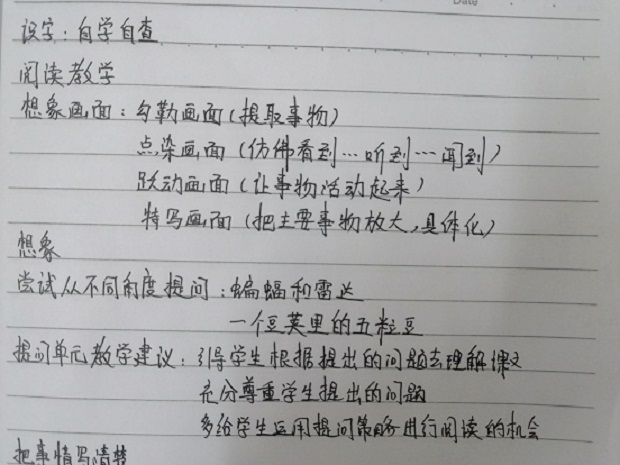 Date
识字：自学自查
阅读教学
想象画面：勾勒画面（提取事物）
点染画面（仿佛看到…听到…闻到）
跃动画面（让事物活动起来）
特写画面（把主要事物放大，具体化）
想象
尝试从不同角度提问：蝙蝠和雷达
一个豆荚里的五粒豆
提问单元教学建议：引导学生根据提出的问题去理解课文
充分尊重学生提出的问题
多给学生运用提问策略进行阅读的机会
把事情写清楚